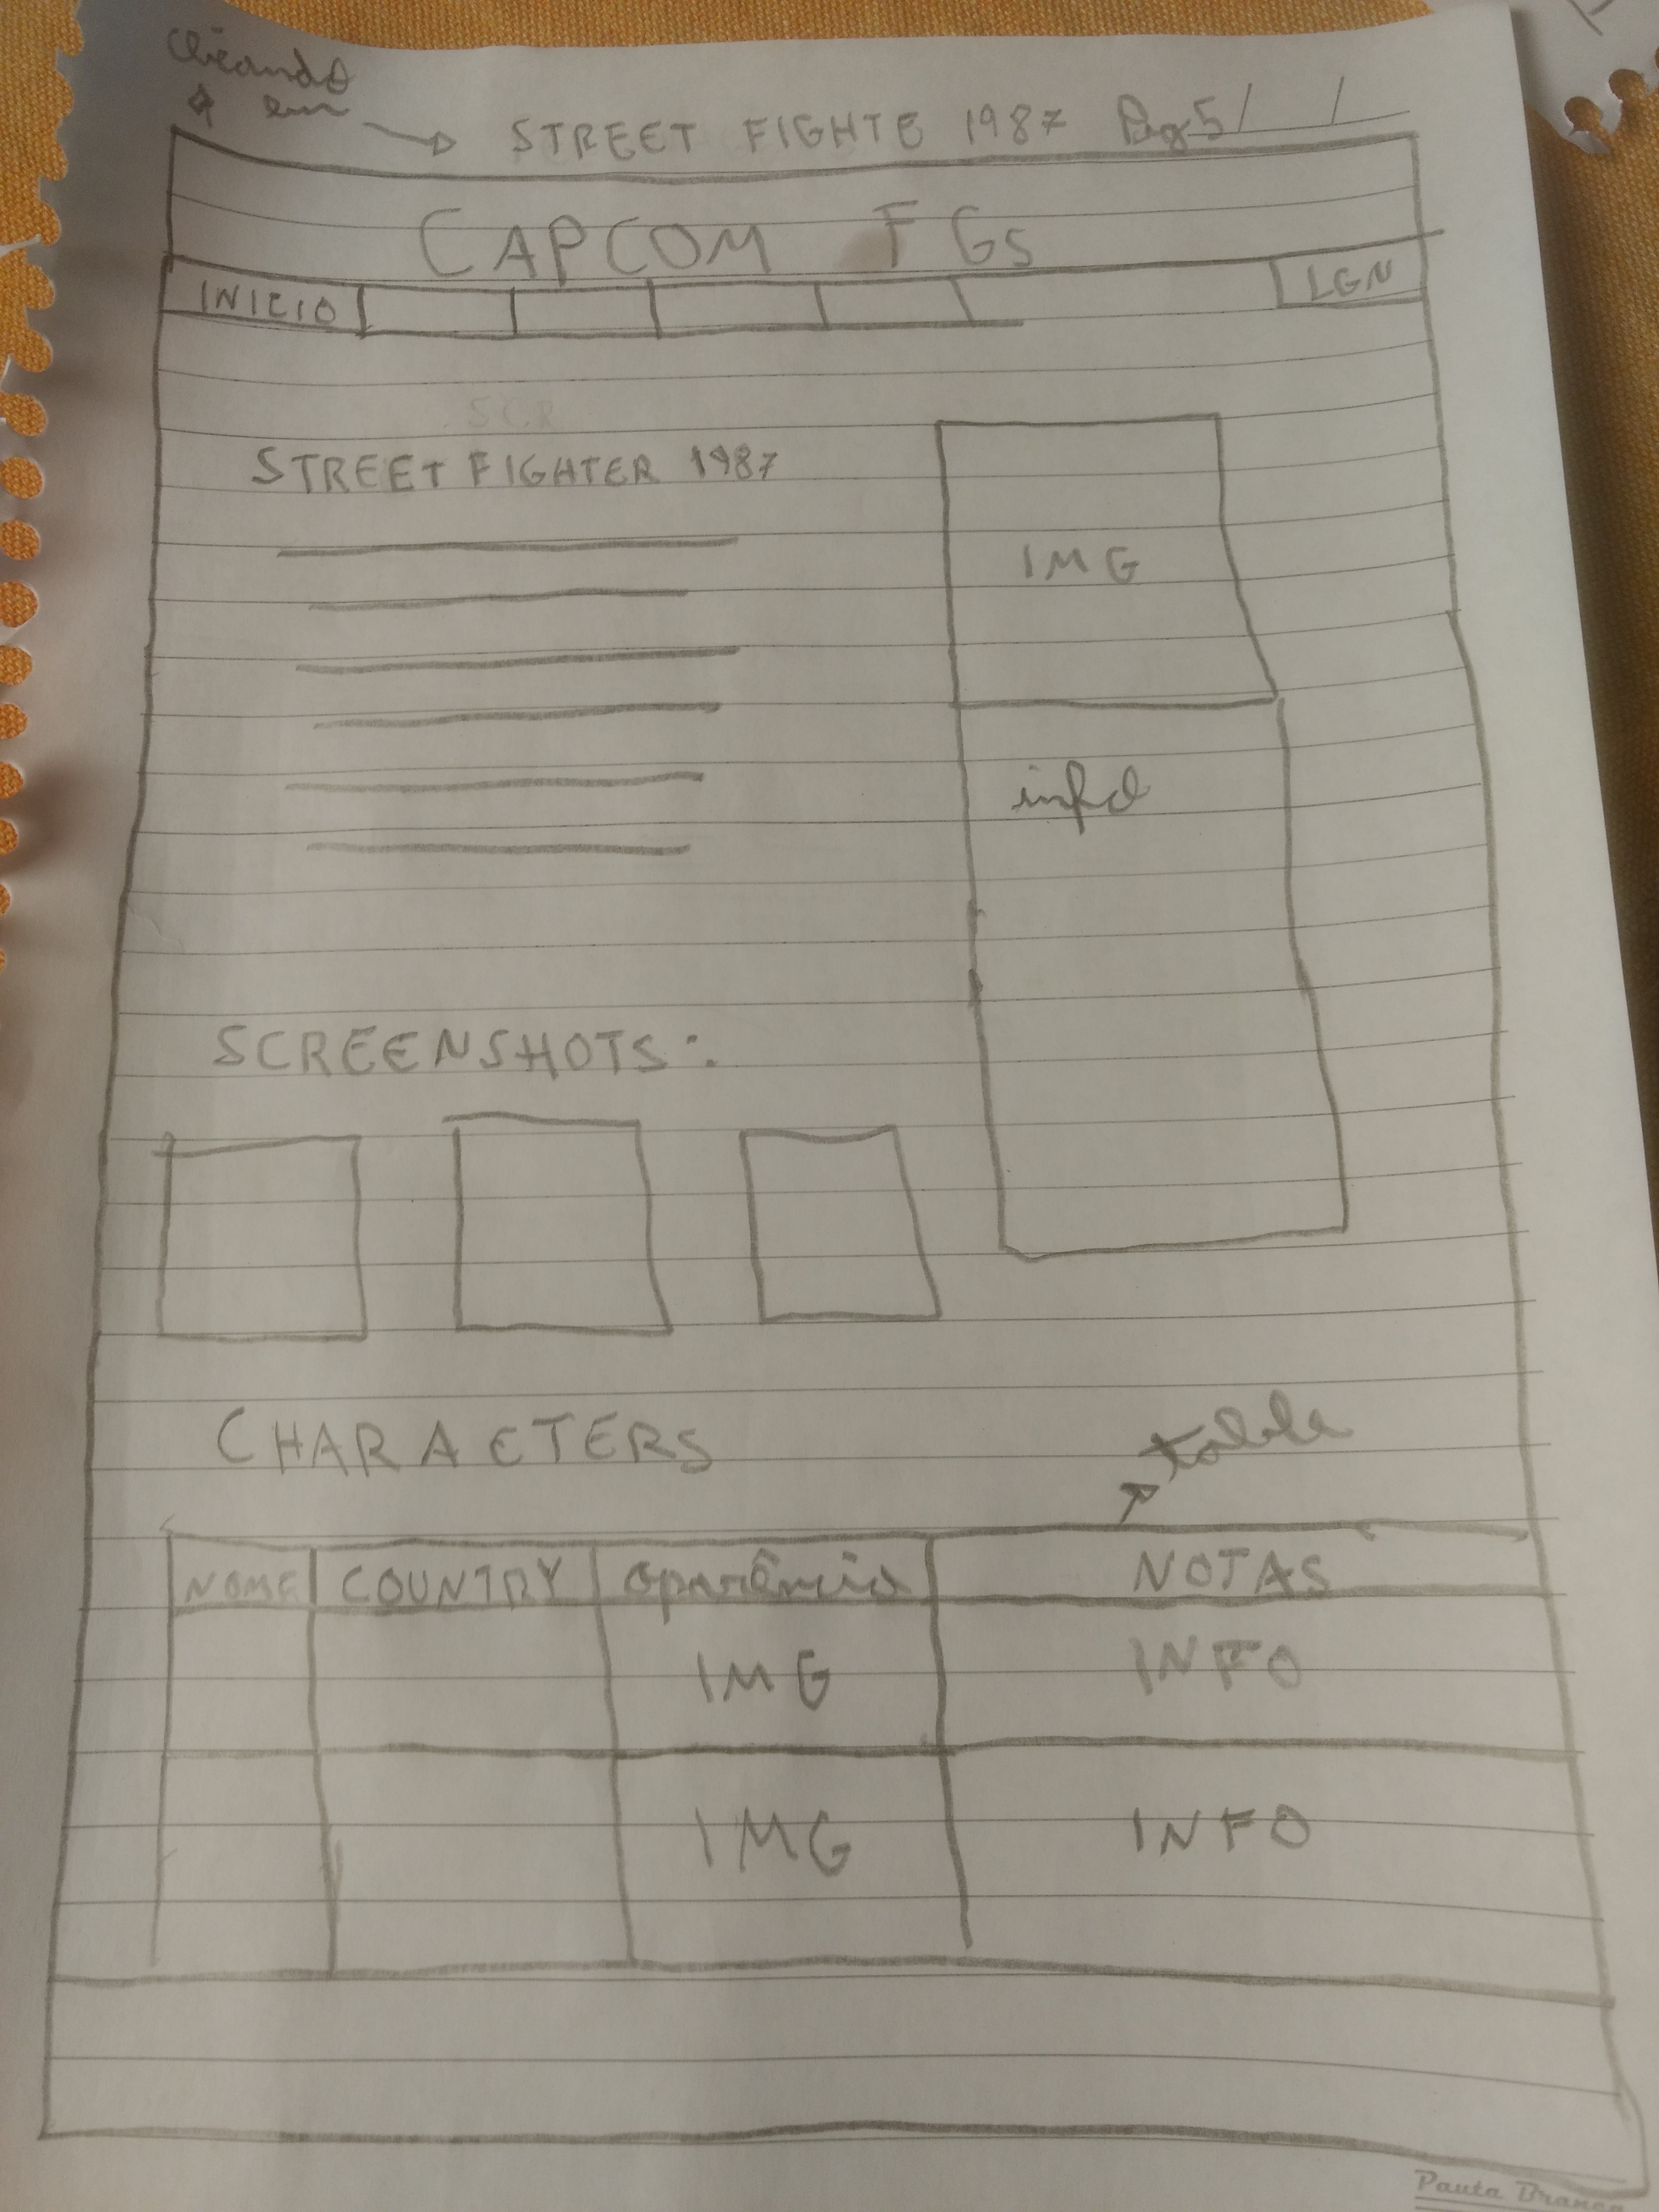 clicando
em
STREET FIGHTE 1987 Pag 5/ /
CAPCOM FGs
INICIO LGN
SCR
STREET FIGHTER 1987
IMG
info
SCREENSHOTS:
CHARACTERS
table
NOME COUNTRY aparência NOTAS
IMG INFO
IMG INFO
Pauta Branca